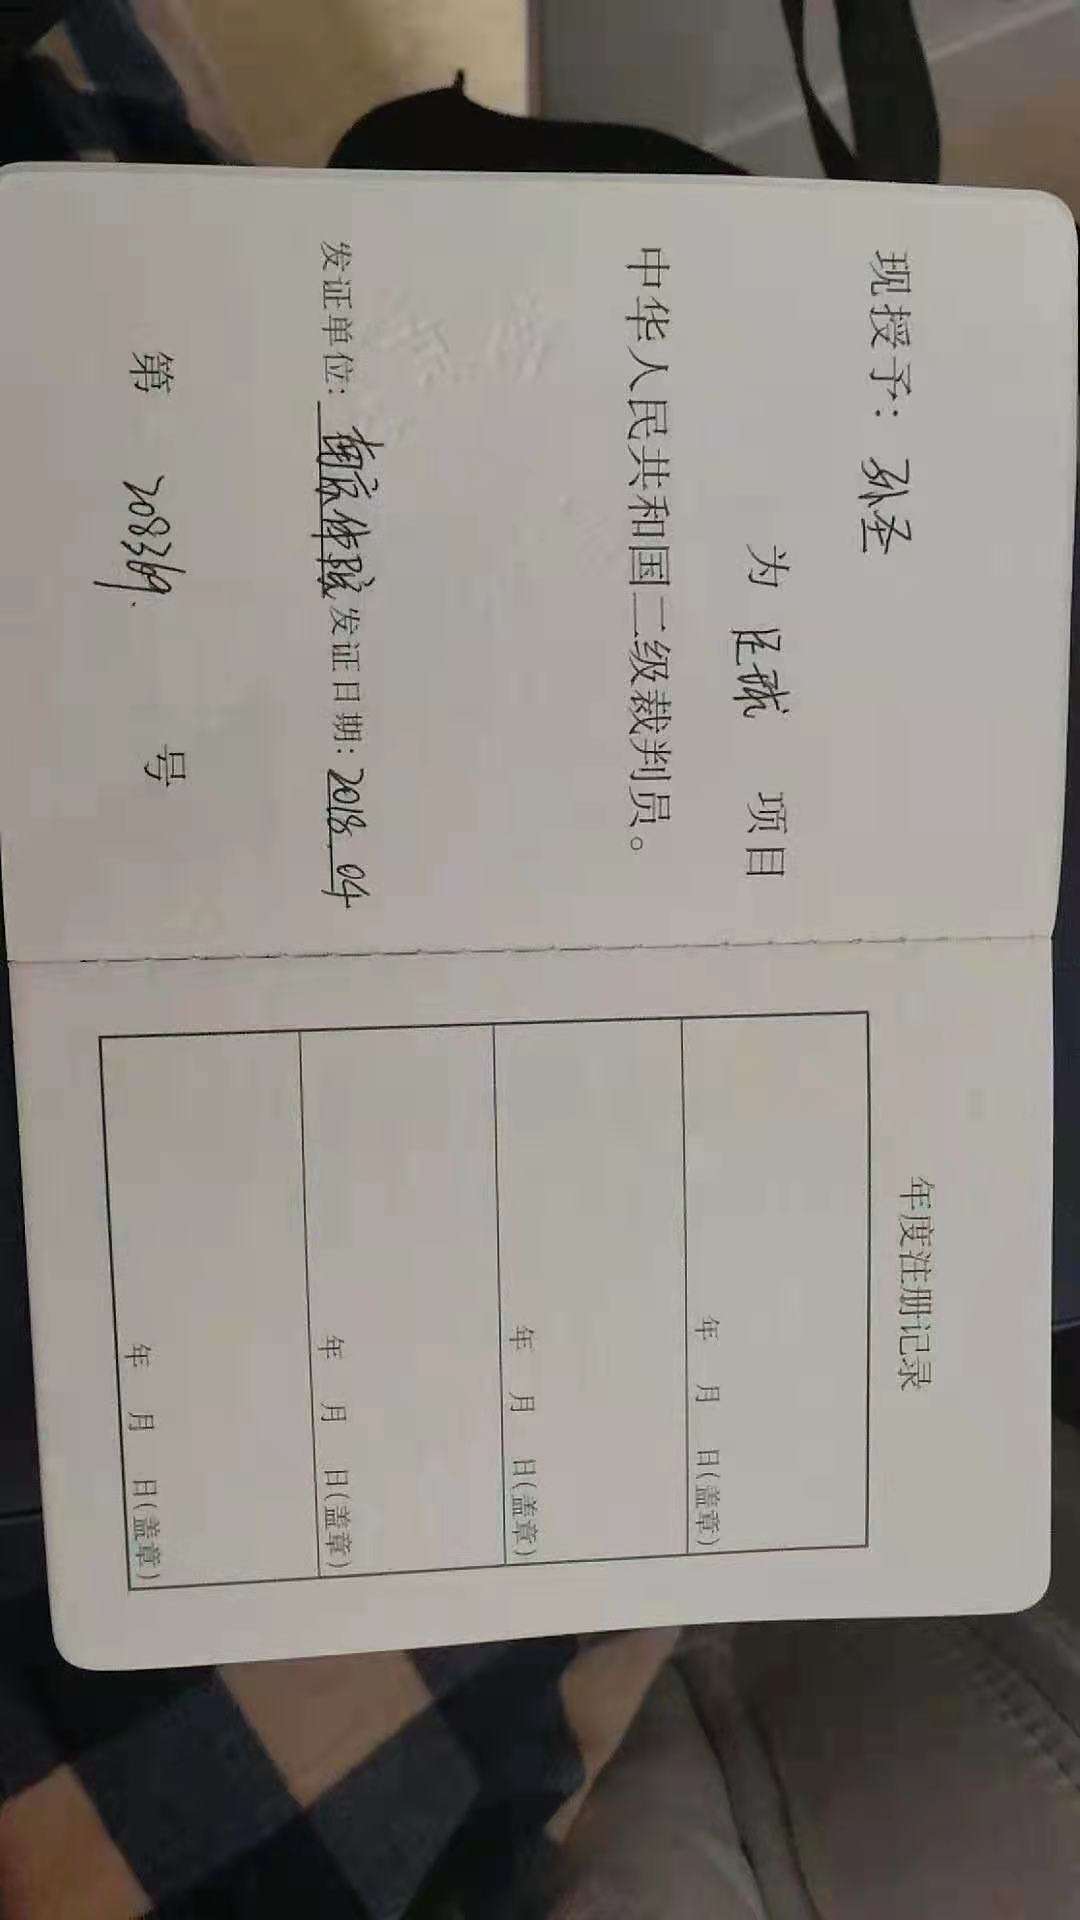 现授予：孙圣
为 足球 项目
中华人民共和国二级裁判员。
发证单位：南京体院 发证日期：2018.04
第 208369. 号
年度注册记录
年 月 日(盖章)
年 月 日(盖章)
年 月 日(盖章)
年 月 日(盖章)